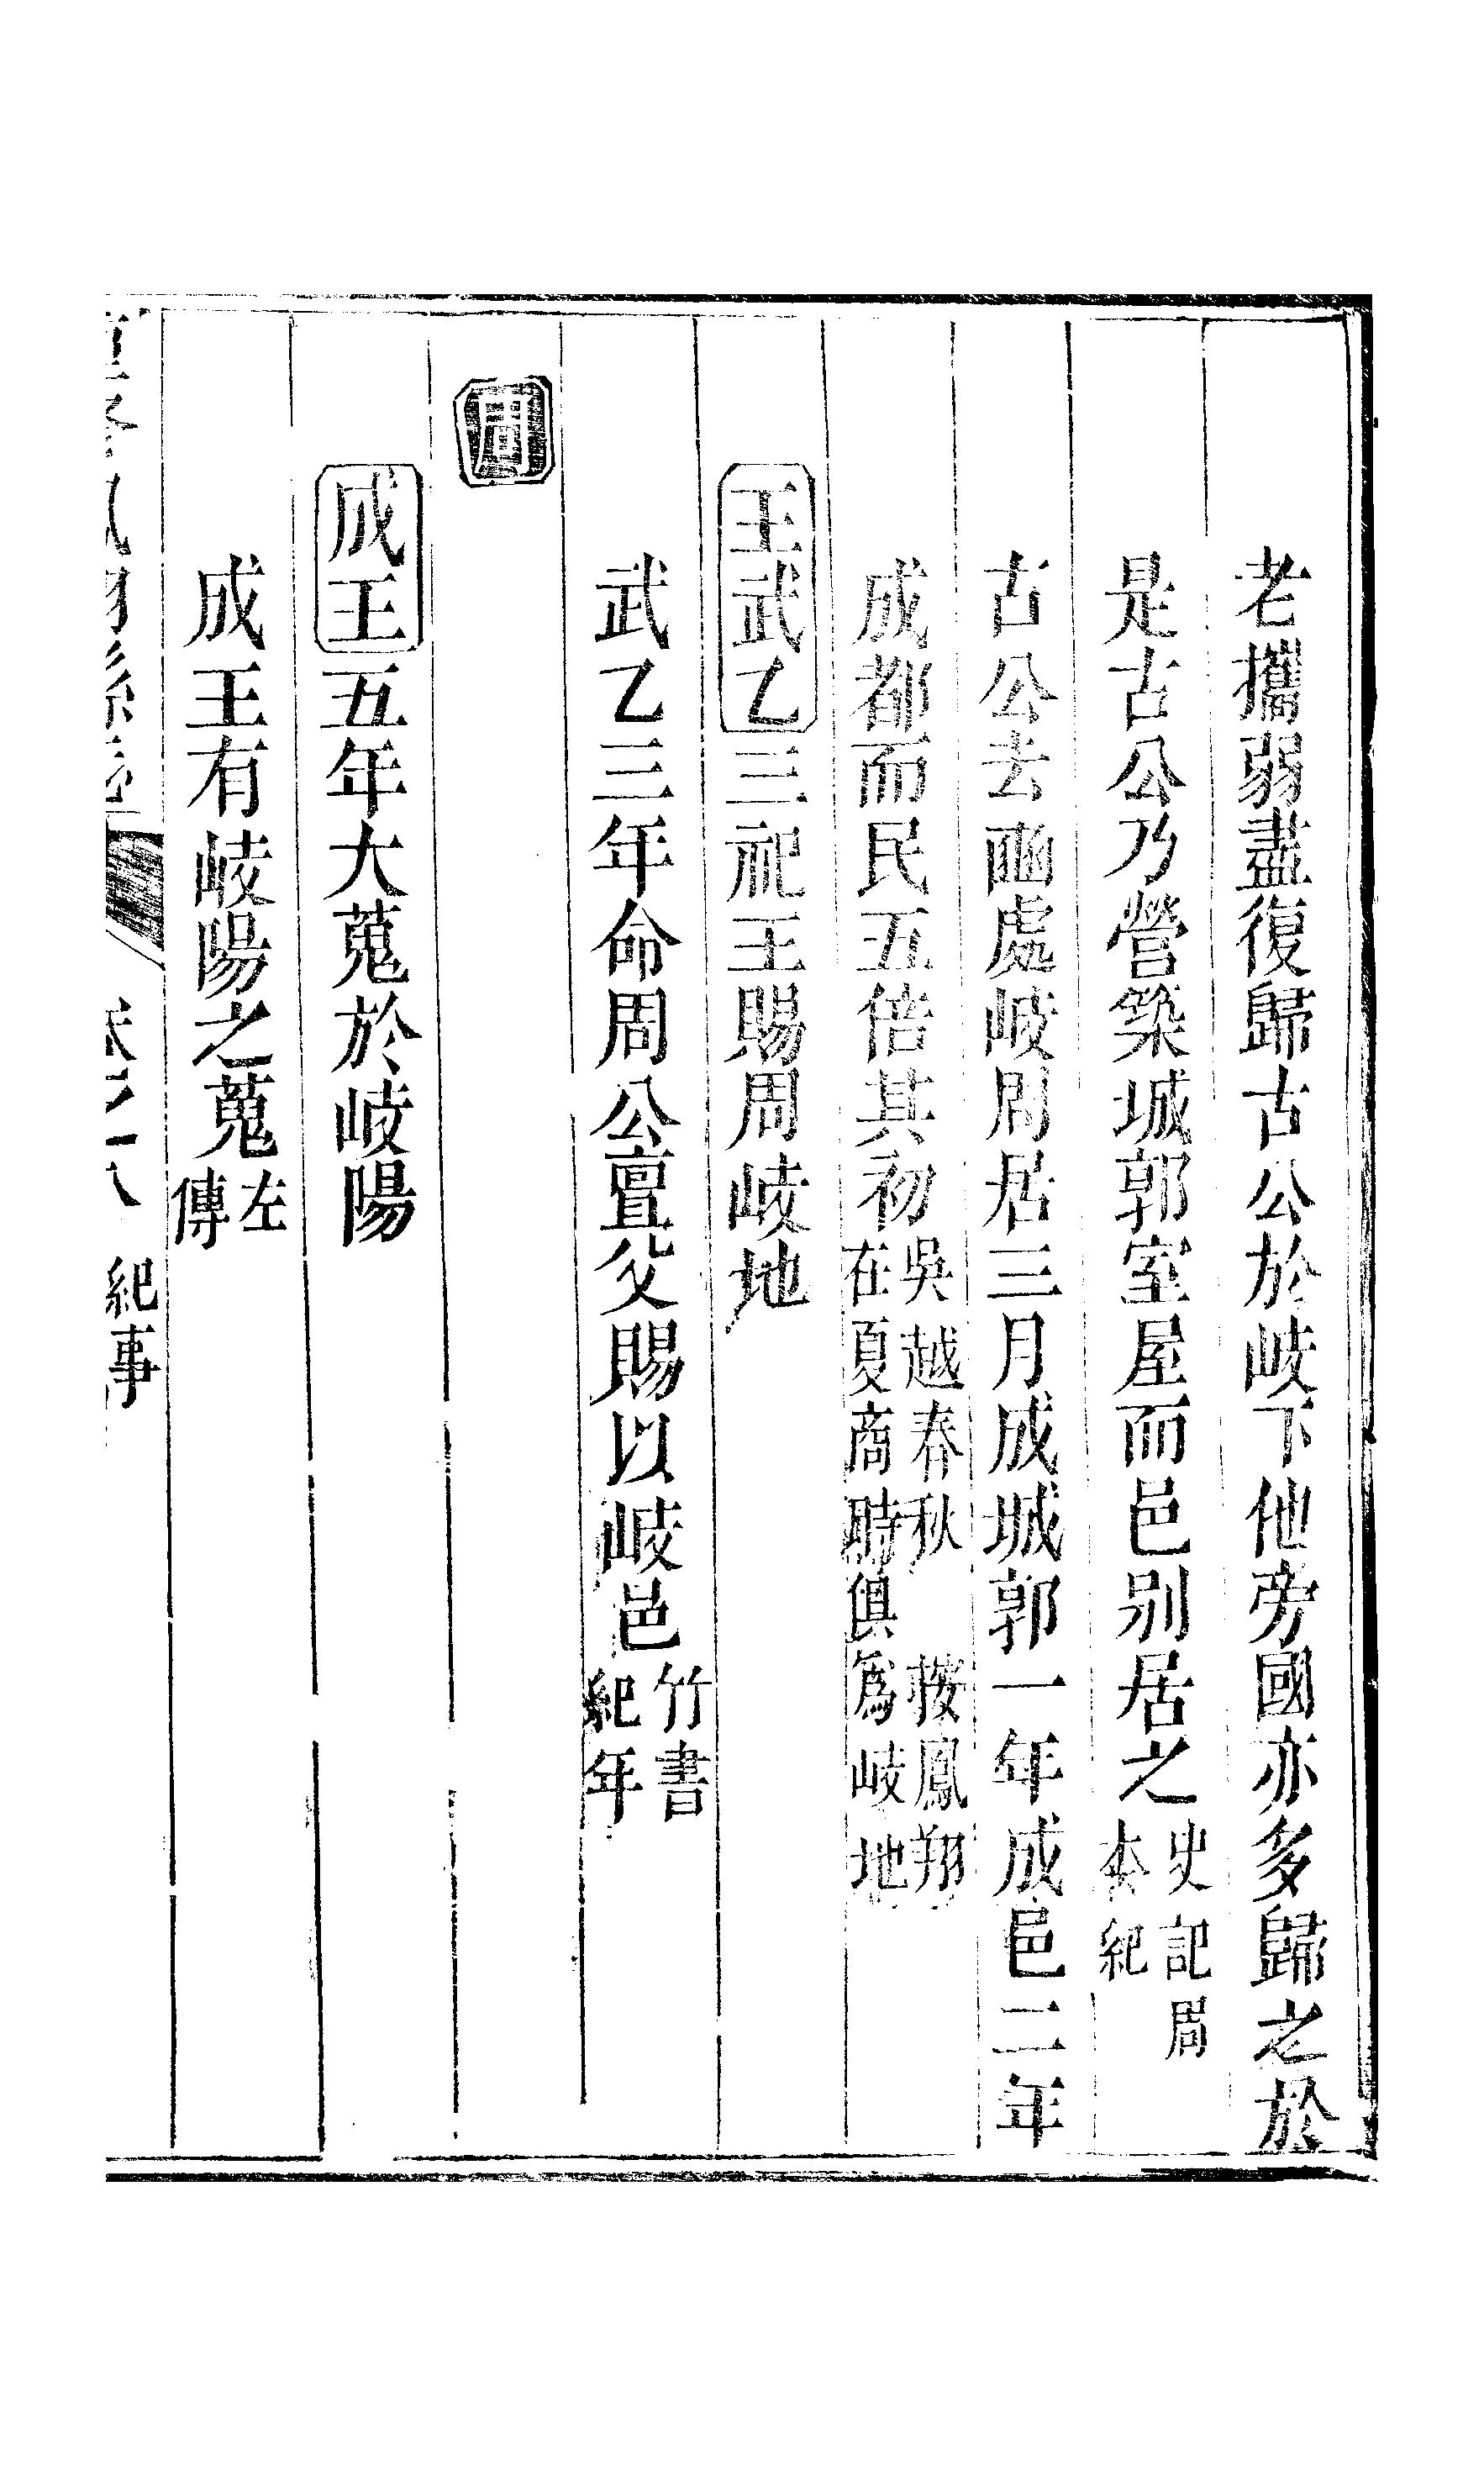 老攜弱盡復歸古公於岐下他旁國亦多歸之於
是古公乃營築城郭室屋而邑别居之史記周本紀
古公去豳處岐周居三月成城郭一年成邑二年
成都而民五倍其初吳越春秋 按鳳翔在夏商時俱爲岐地
王武乙三祀王賜周岐地
武乙三年命周公亶父賜以岐邑竹書紀年
周
成王五年大蒐於岐陽
成王有岐陽之蒐左傳
紀事